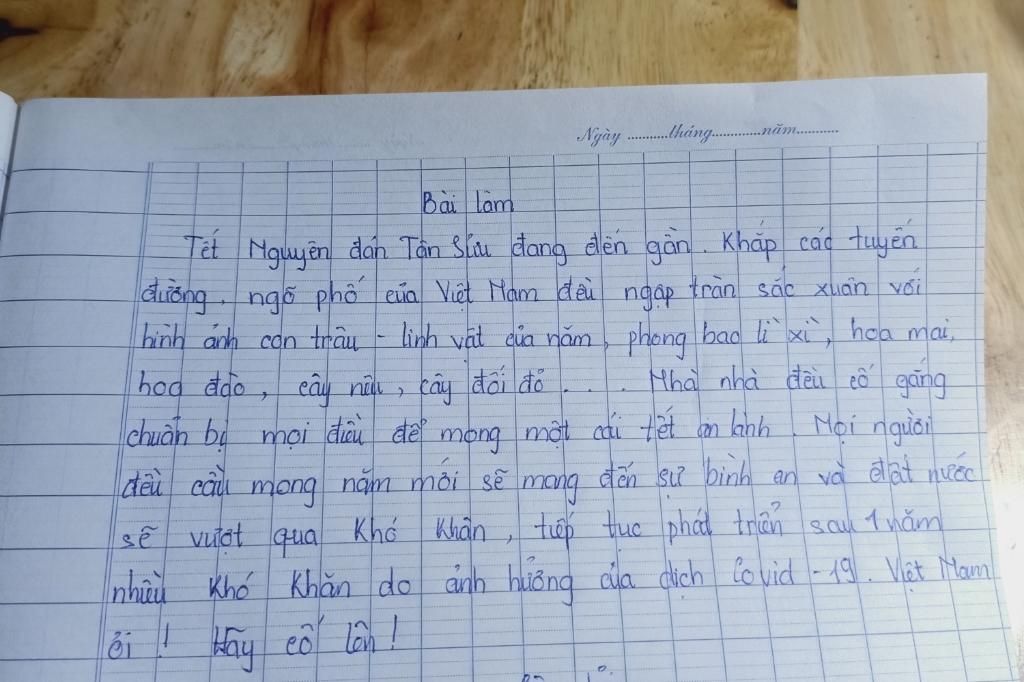 Ngày ...........tháng.............năm...........
Bài làm
Tết Nguyên đán Tân Sửu đang đến gần. Khắp các tuyến
đường, ngõ phố của Việt Nam đều ngập tràn sắc xuân với
hình ảnh con trâu - linh vật của năm, phong bao lì xì, hoa mai,
hoa đào, cây nêu, cây đối đỏ . . . . Nhà nhà đều cố gắng
chuẩn bị mọi điều để mong một cái tết an lành. Mọi người
đều cầu mong năm mới sẽ mang đến sự bình an và đất nước
sẽ vượt qua khó khăn, tiếp tục phát triển sau 1 năm
nhiều khó khăn do ảnh hưởng của dịch Covid - 19. Việt Nam
ơi ! Hãy cố lên !